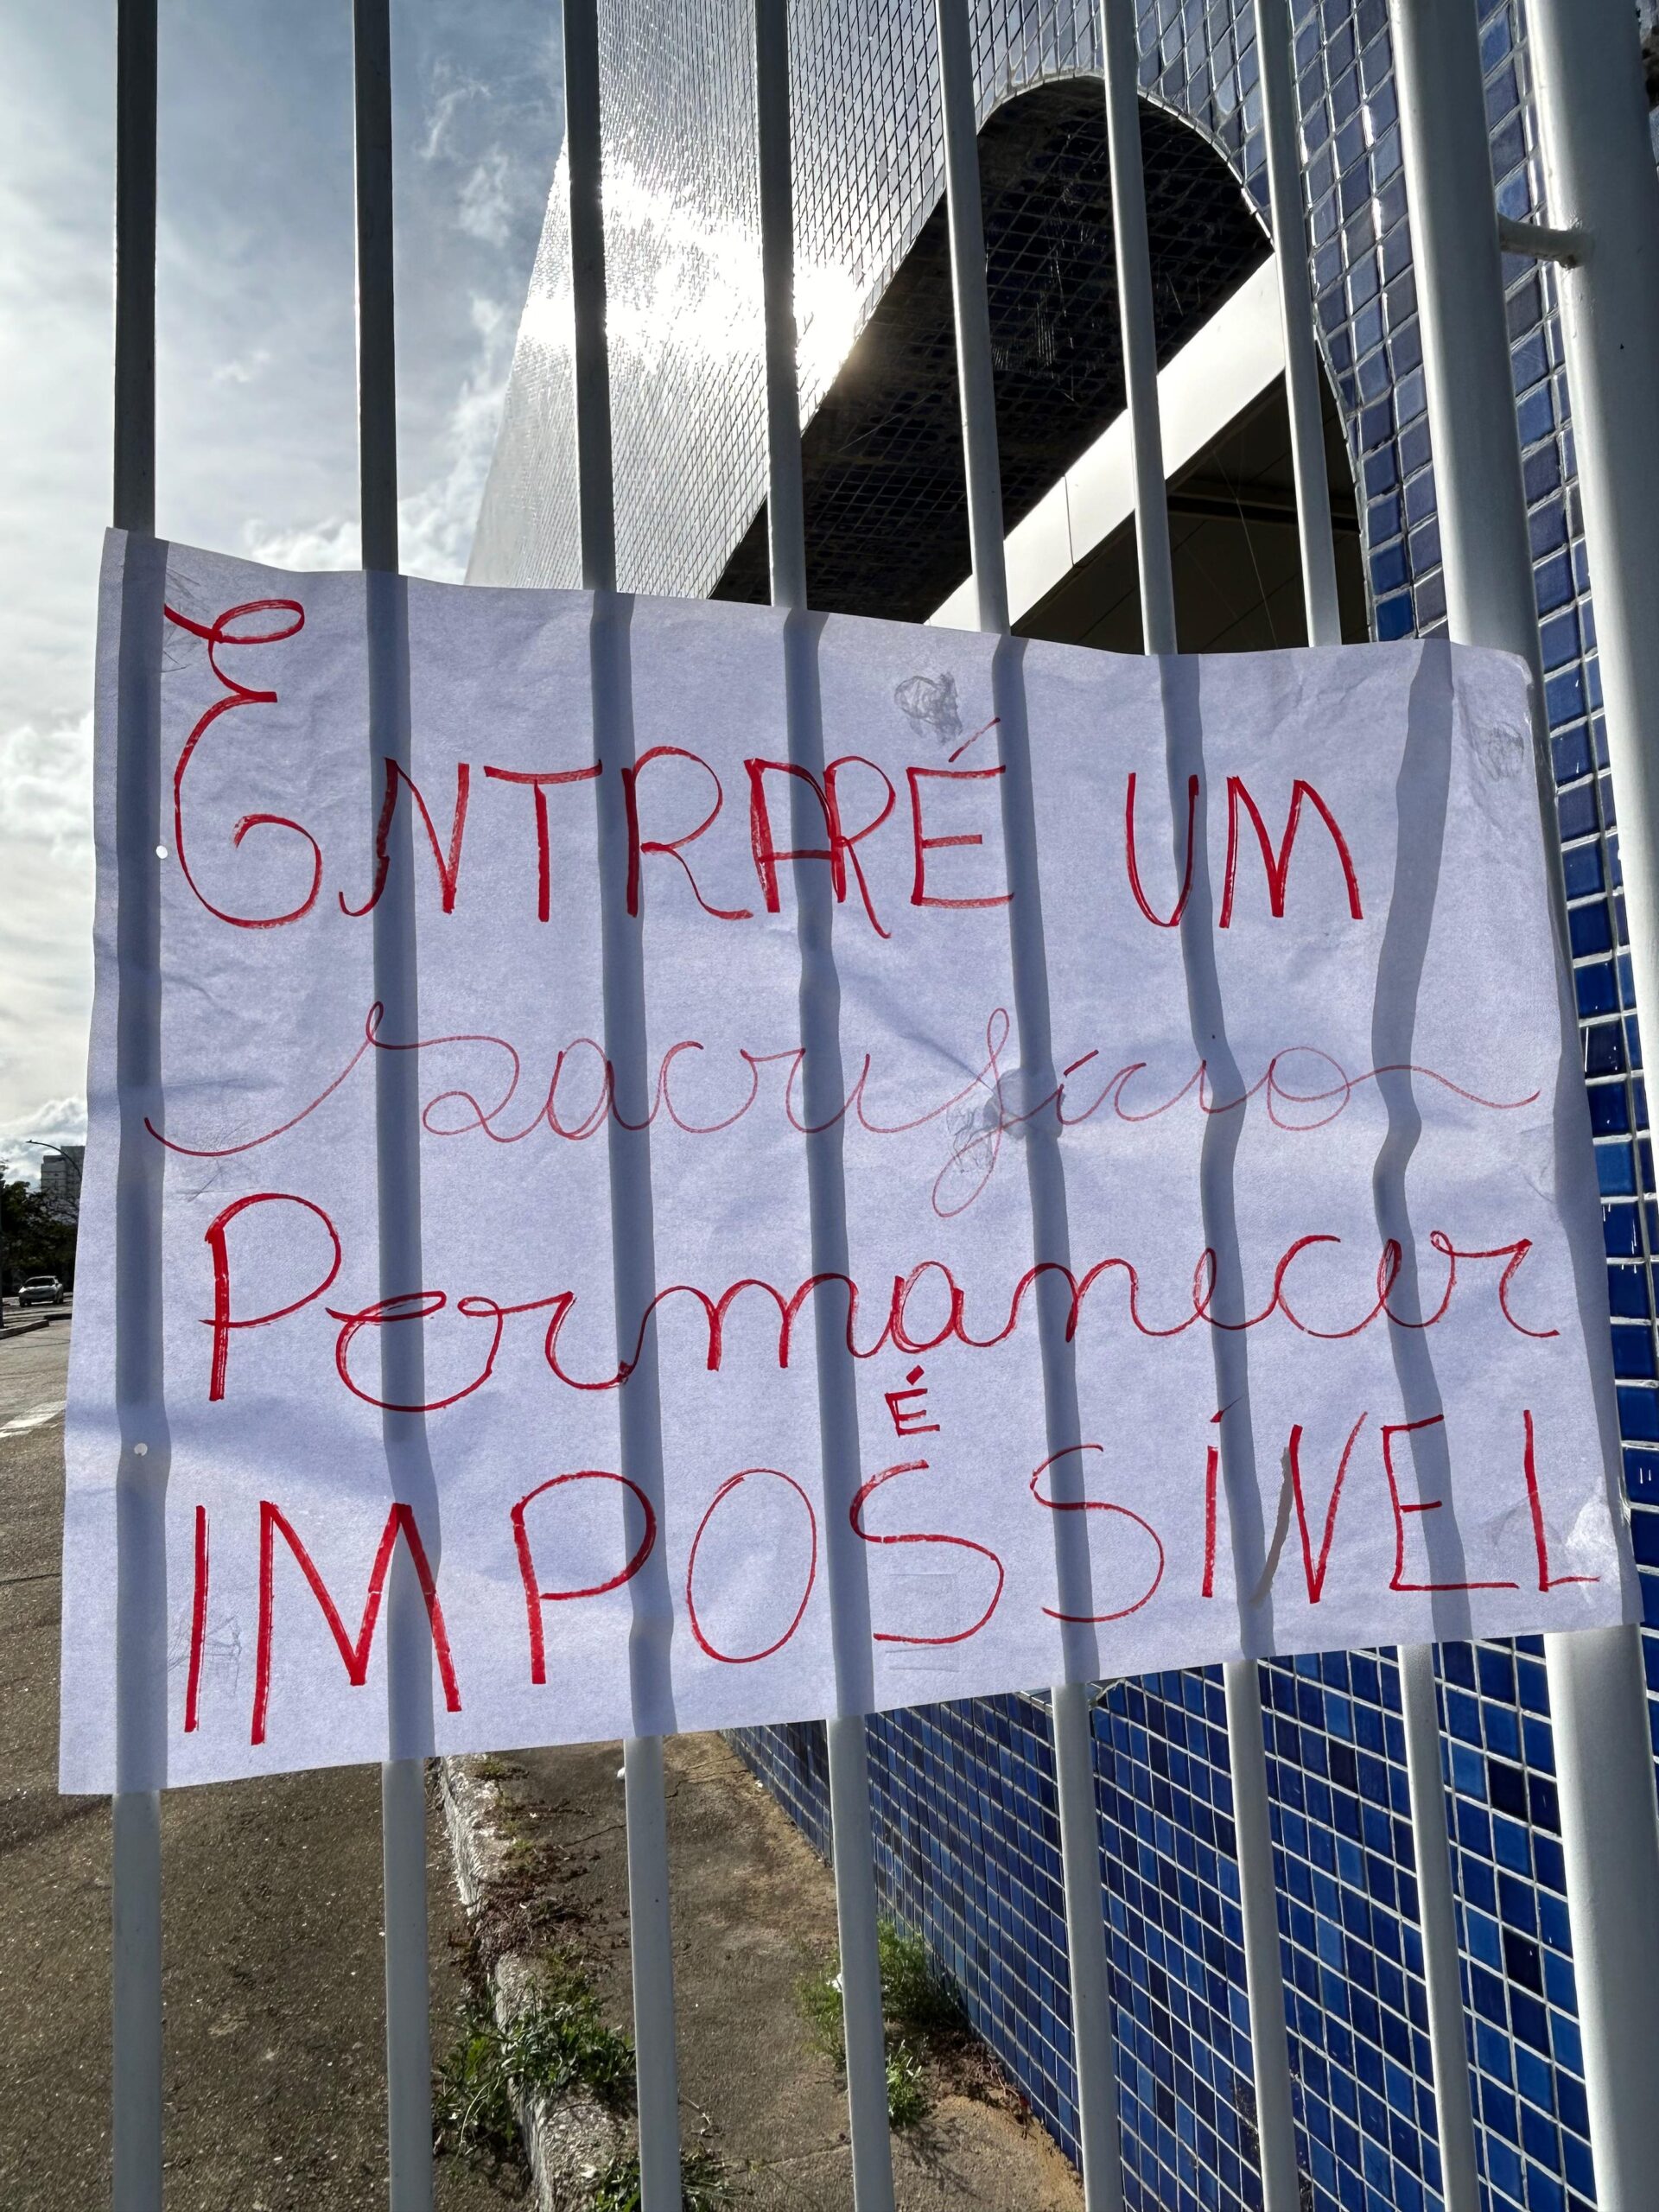 ENTRARÉ UM
sacrifício
Permanecer
É
IMPOSSÍVEL